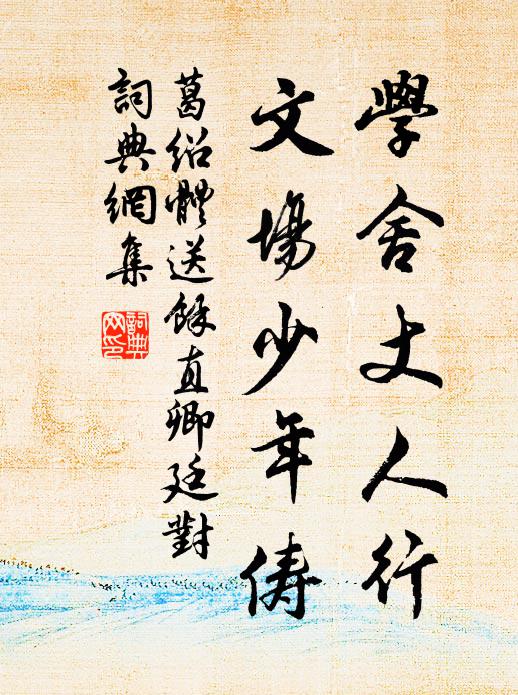 學舍丈人行
文場少年儔
葛绍體送餘直卿廷對
詞典網集
詞典網印